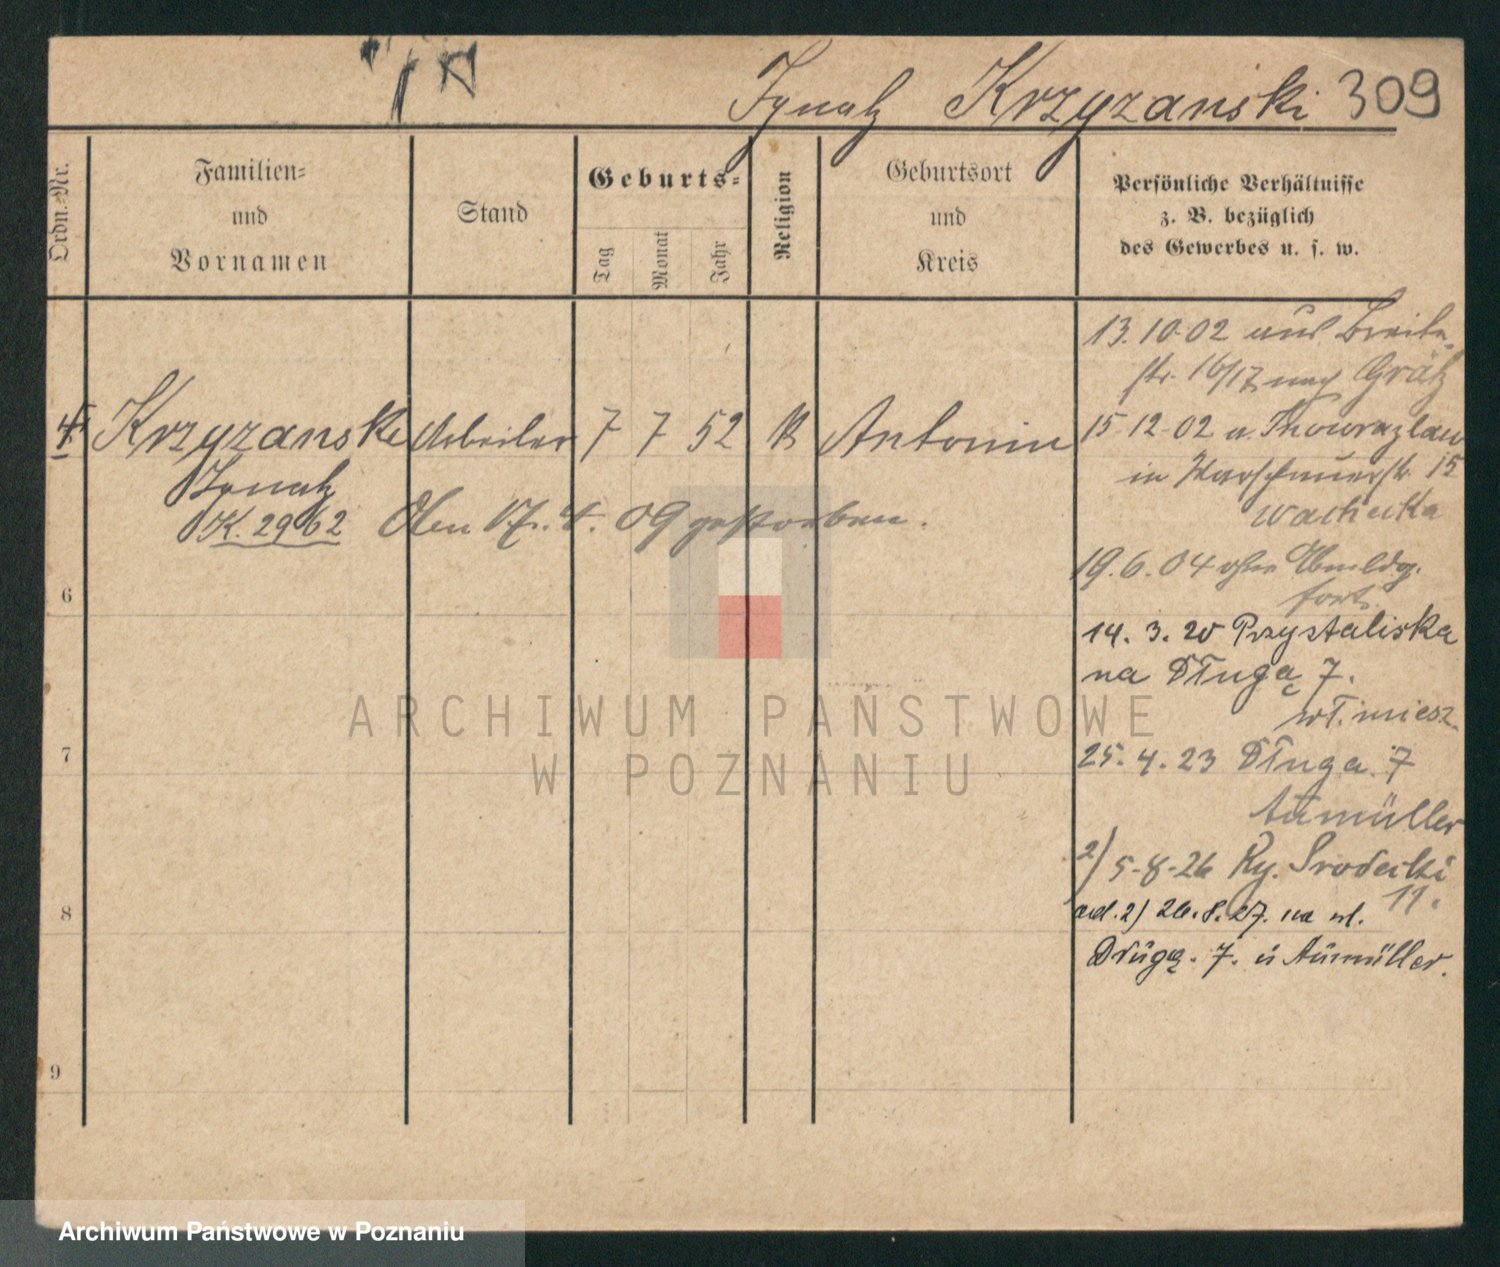 Ignatz Krzyzanski 309
Ordn.-Nr.
Familien-
und
Vornamen
Stand
Geburts-
Tag
Monat
Jahr
Religion
Geburtsort
und
Kreis
Persönliche Verhältnisse
z. B. bezüglich
des Gewerbes u. s. w.
Krzyzanski Arbeiter 7 7 52 K Antonin
Ignatz
K. 2962 Am 17. 4. 09 gestorben.
13. 10. 02 aus Breite-
str. 16/17 nach Grätz
15 12 02 a. Inowrazlaw
in Warschauerstr. 15
19. 6. 04 ohne Abmeldg.
fort.
14. 3. 20 Przystaliska
na Długą 7.
wł. miesz.
25. 4. 23 Długa 7
Aumüller
2) 5-8-26 Ry. Srodecki
11.
ad. 2) 26. 8. 27. na ul.
Długą. 7. u Aumüller.
6
7
8
9
ARCHIWUM PAŃSTWOWE
W POZNANIU
Archiwum Państwowe w Poznaniu